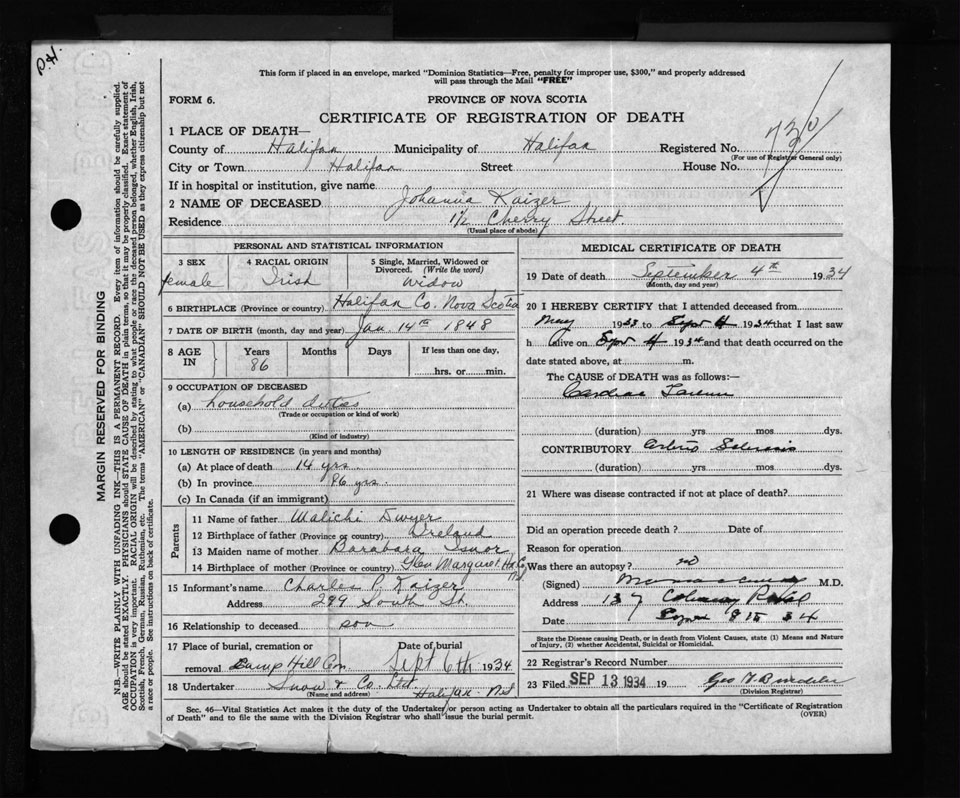 D.H.
This form if placed in an envelope, marked "Dominion Statistics—Free, penalty for improper use, $300," and properly addressed
will pass through the Mail "FREE"
FORM 6.
PROVINCE OF NOVA SCOTIA
CERTIFICATE OF REGISTRATION OF DEATH
730
1 PLACE OF DEATH—
County of Halifax Municipality of Halifax Registered No.
(For use of Registrar General only)
City or Town Halifax Street House No.
If in hospital or institution, give name
2 NAME OF DECEASED Johanna Kaizer
Residence 1½ Cherry Street
(Usual place of abode)
PERSONAL AND STATISTICAL INFORMATION
3 SEX female
4 RACIAL ORIGIN Irish
5 Single, Married, Widowed or
Divorced. (Write the word)
widow
6 BIRTHPLACE (Province or country) Halifax Co. Nova Scotia
7 DATE OF BIRTH (month, day and year) Jan. 14th 1848
8 AGE IN Years Months Days If less than one day,
86 hrs. or min.
9 OCCUPATION OF DECEASED
(a) household duties
(Trade or occupation or kind of work)
(b)
(Kind of industry)
10 LENGTH OF RESIDENCE (in years and months)
(a) At place of death 14 yrs.
(b) In province 86 yrs.
(c) In Canada (if an immigrant)
Parents
11 Name of father Malichi Dwyer
12 Birthplace of father (Province or country) Ireland
13 Maiden name of mother Barabara
14 Birthplace of mother (Province or country) Glen Margaret. Hx Co. NS
15 Informant's name Charles P. Kaizer
Address 299 South St.
16 Relationship to deceased son
17 Place of burial, cremation or Date of burial
removal Camp Hill Cem Sept 6th 1934
18 Undertaker Snow & Co. Ltd. Halifax. N.S
(Name and address)
MEDICAL CERTIFICATE OF DEATH
19 Date of death September 4th 1934
(Month, day and year)
20 I HEREBY CERTIFY that I attended deceased from
May 1933 to Sept 4 1934 that I last saw
h alive on Sept 4 1934 and that death occurred on the
date stated above, at m.
The CAUSE of DEATH was as follows:—
Cardiac Failure
(duration) yrs mos dys.
CONTRIBUTORY Arterio Sclerosis
(duration) yrs mos dys.
21 Where was disease contracted if not at place of death?
Did an operation precede death? Date of
Reason for operation
Was there an autopsy? no
(Signed) M.D.
Address 137
Date Sept 34
State the Disease causing Death, or in death from Violent Causes, state (1) Means and Nature
of Injury, (2) whether Accidental, Suicidal or Homicidal.
22 Registrar's Record Number
23 Filed SEP 13 1934 19 Geo
(Division Registrar)
Sec. 46—Vital Statistics Act makes it the duty of the Undertaker or person acting as Undertaker to obtain all the particulars required in the "Certificate of Registration
of Death" and to file the same with the Division Registrar who shall issue the burial permit. (OVER)
MARGIN RESERVED FOR BINDING
N.B.—WRITE PLAINLY WITH UNFADING INK—THIS IS A PERMANENT RECORD. Every item of information should be carefully supplied.
AGE should be stated EXACTLY. PHYSICIANS should STATE CAUSE OF DEATH in plain terms, so that it may be properly classified. Exact statement of
OCCUPATION is very important. RACIAL ORIGIN will be described by stating to what people or race the deceased person belonged, whether English, Irish,
Scottish, French, German, Russian, Ruthenian, etc. The terms "AMERICAN" or "CANADIAN" SHOULD NOT BE USED as they express citizenship but not
a race or people. See instructions on back of certificate.